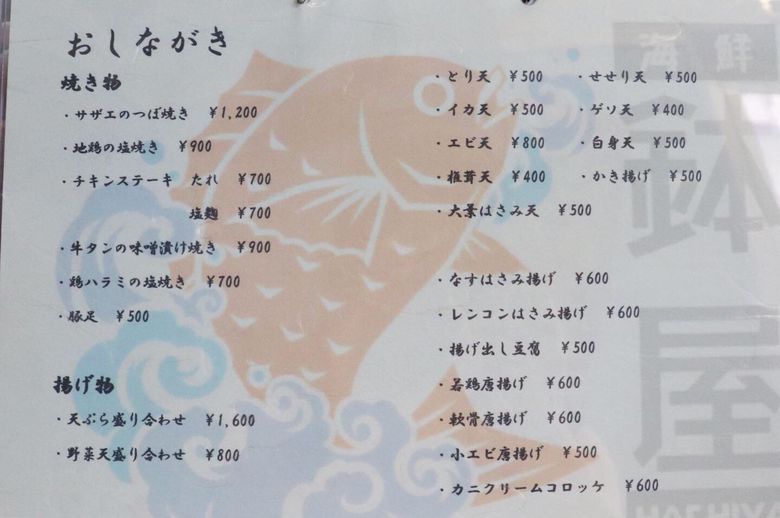 おしながき
焼き物
・サザエのつぼ焼き ¥1,200
・地鶏の塩焼き ¥900
・チキンステーキ たれ ¥700
塩麹 ¥700
・牛タンの味噌漬け焼き ¥900
・鶏ハラミの塩焼き ¥700
・豚足 ¥500
揚げ物
・天ぷら盛り合わせ ¥1,600
・野菜天盛り合わせ ¥800
・とり天 ¥500 ・せせり天 ¥500
・イカ天 ¥500 ・ゲソ天 ¥400
・エビ天 ¥800 ・白身天 ¥500
・椎茸天 ¥400 ・かき揚げ ¥500
・大葉はさみ天 ¥500
・なすはさみ揚げ ¥600
・レンコンはさみ揚げ ¥600
・揚げ出し豆腐 ¥500
・若鶏唐揚げ ¥600
・軟骨唐揚げ ¥600
・小エビ唐揚げ ¥500
・カニクリームコロッケ ¥600
海鮮
鉢屋
HACHIYA